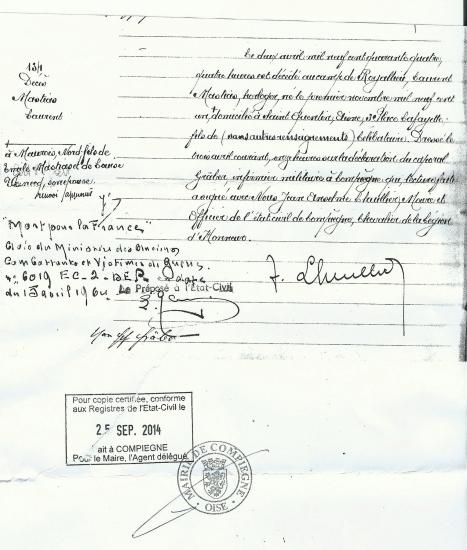 131
Décès
Mastias
Laurent
à Maurois, Nord, fils de
"Mort pour la France"
Avis du Ministère des Anciens
Combattants et Victimes de guerre
n° 6019 EC-2-DER
du 13 avril 1964
Le deux avril mil neuf cent quarante quatre,
quatre heures est décédé au camp de Royallieu, Laurent
Mastias, horloger, né le premier novembre mil neuf cent
un, domicilié à Saint Quentin, Aisne, Place Lafayette
fils de (sans autres renseignements) Célibataire. Dressé le
trois avril courant, onze heures sur la déclaration du caporal
Gräber, infirmier militaire à Compiègne qui, lecture faite
a signé avec Nous Jean Anselme Lhuillier, Maire et
Officier de l'état civil de Compiègne, Chevalier de la Légion
d'Honneur.
Le Préposé à l'Etat-Civil
Pour copie certifiée, conforme
aux Registres de l'Etat-Civil le
25 SEP. 2014
ait à COMPIEGNE
Pour le Maire, l'Agent délégué
MAIRIE DE COMPIEGNE
OISE